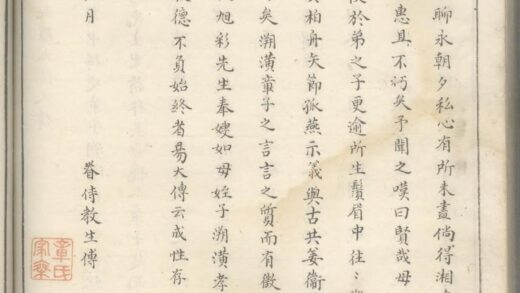 聊永朝夕私心有所未盡倘得湘
惠且不污矣予聞之嘆曰賢哉母
於弟之子更逾所生鬚眉中往
柏舟矢節孤燕示義與古共姜衞
矣溯潢童子之言言之質而有徵
旭彩先生奉嫂如母姪子溯潢孝
德不負始終者易大傳云成性存
月
眷侍教生傳
章氏